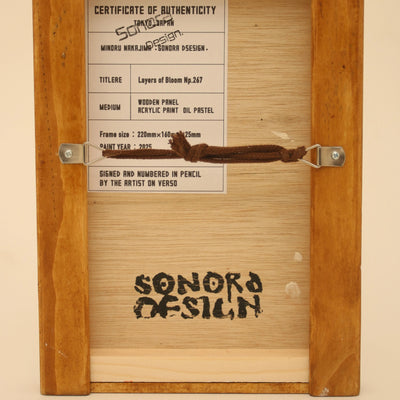 CERTIFICATE OF AUTHENTICITY
TOKYO JAPAN
Sonora
Design.
MINORU NAKAJIMA (SONORA DSESIGN)
TITLERE Layers of Bloom Np.267
MEDIUM WOODEN PANEL
ACRYLIC PAINT OIL PASTEL
Frame size : 220mm×160mm×25mm
PAINT YEAR : 2025
SIGNED AND NUMBERED IN PENCIL
BY THE ARTIST ON VERSO
SONORA
DESIGN